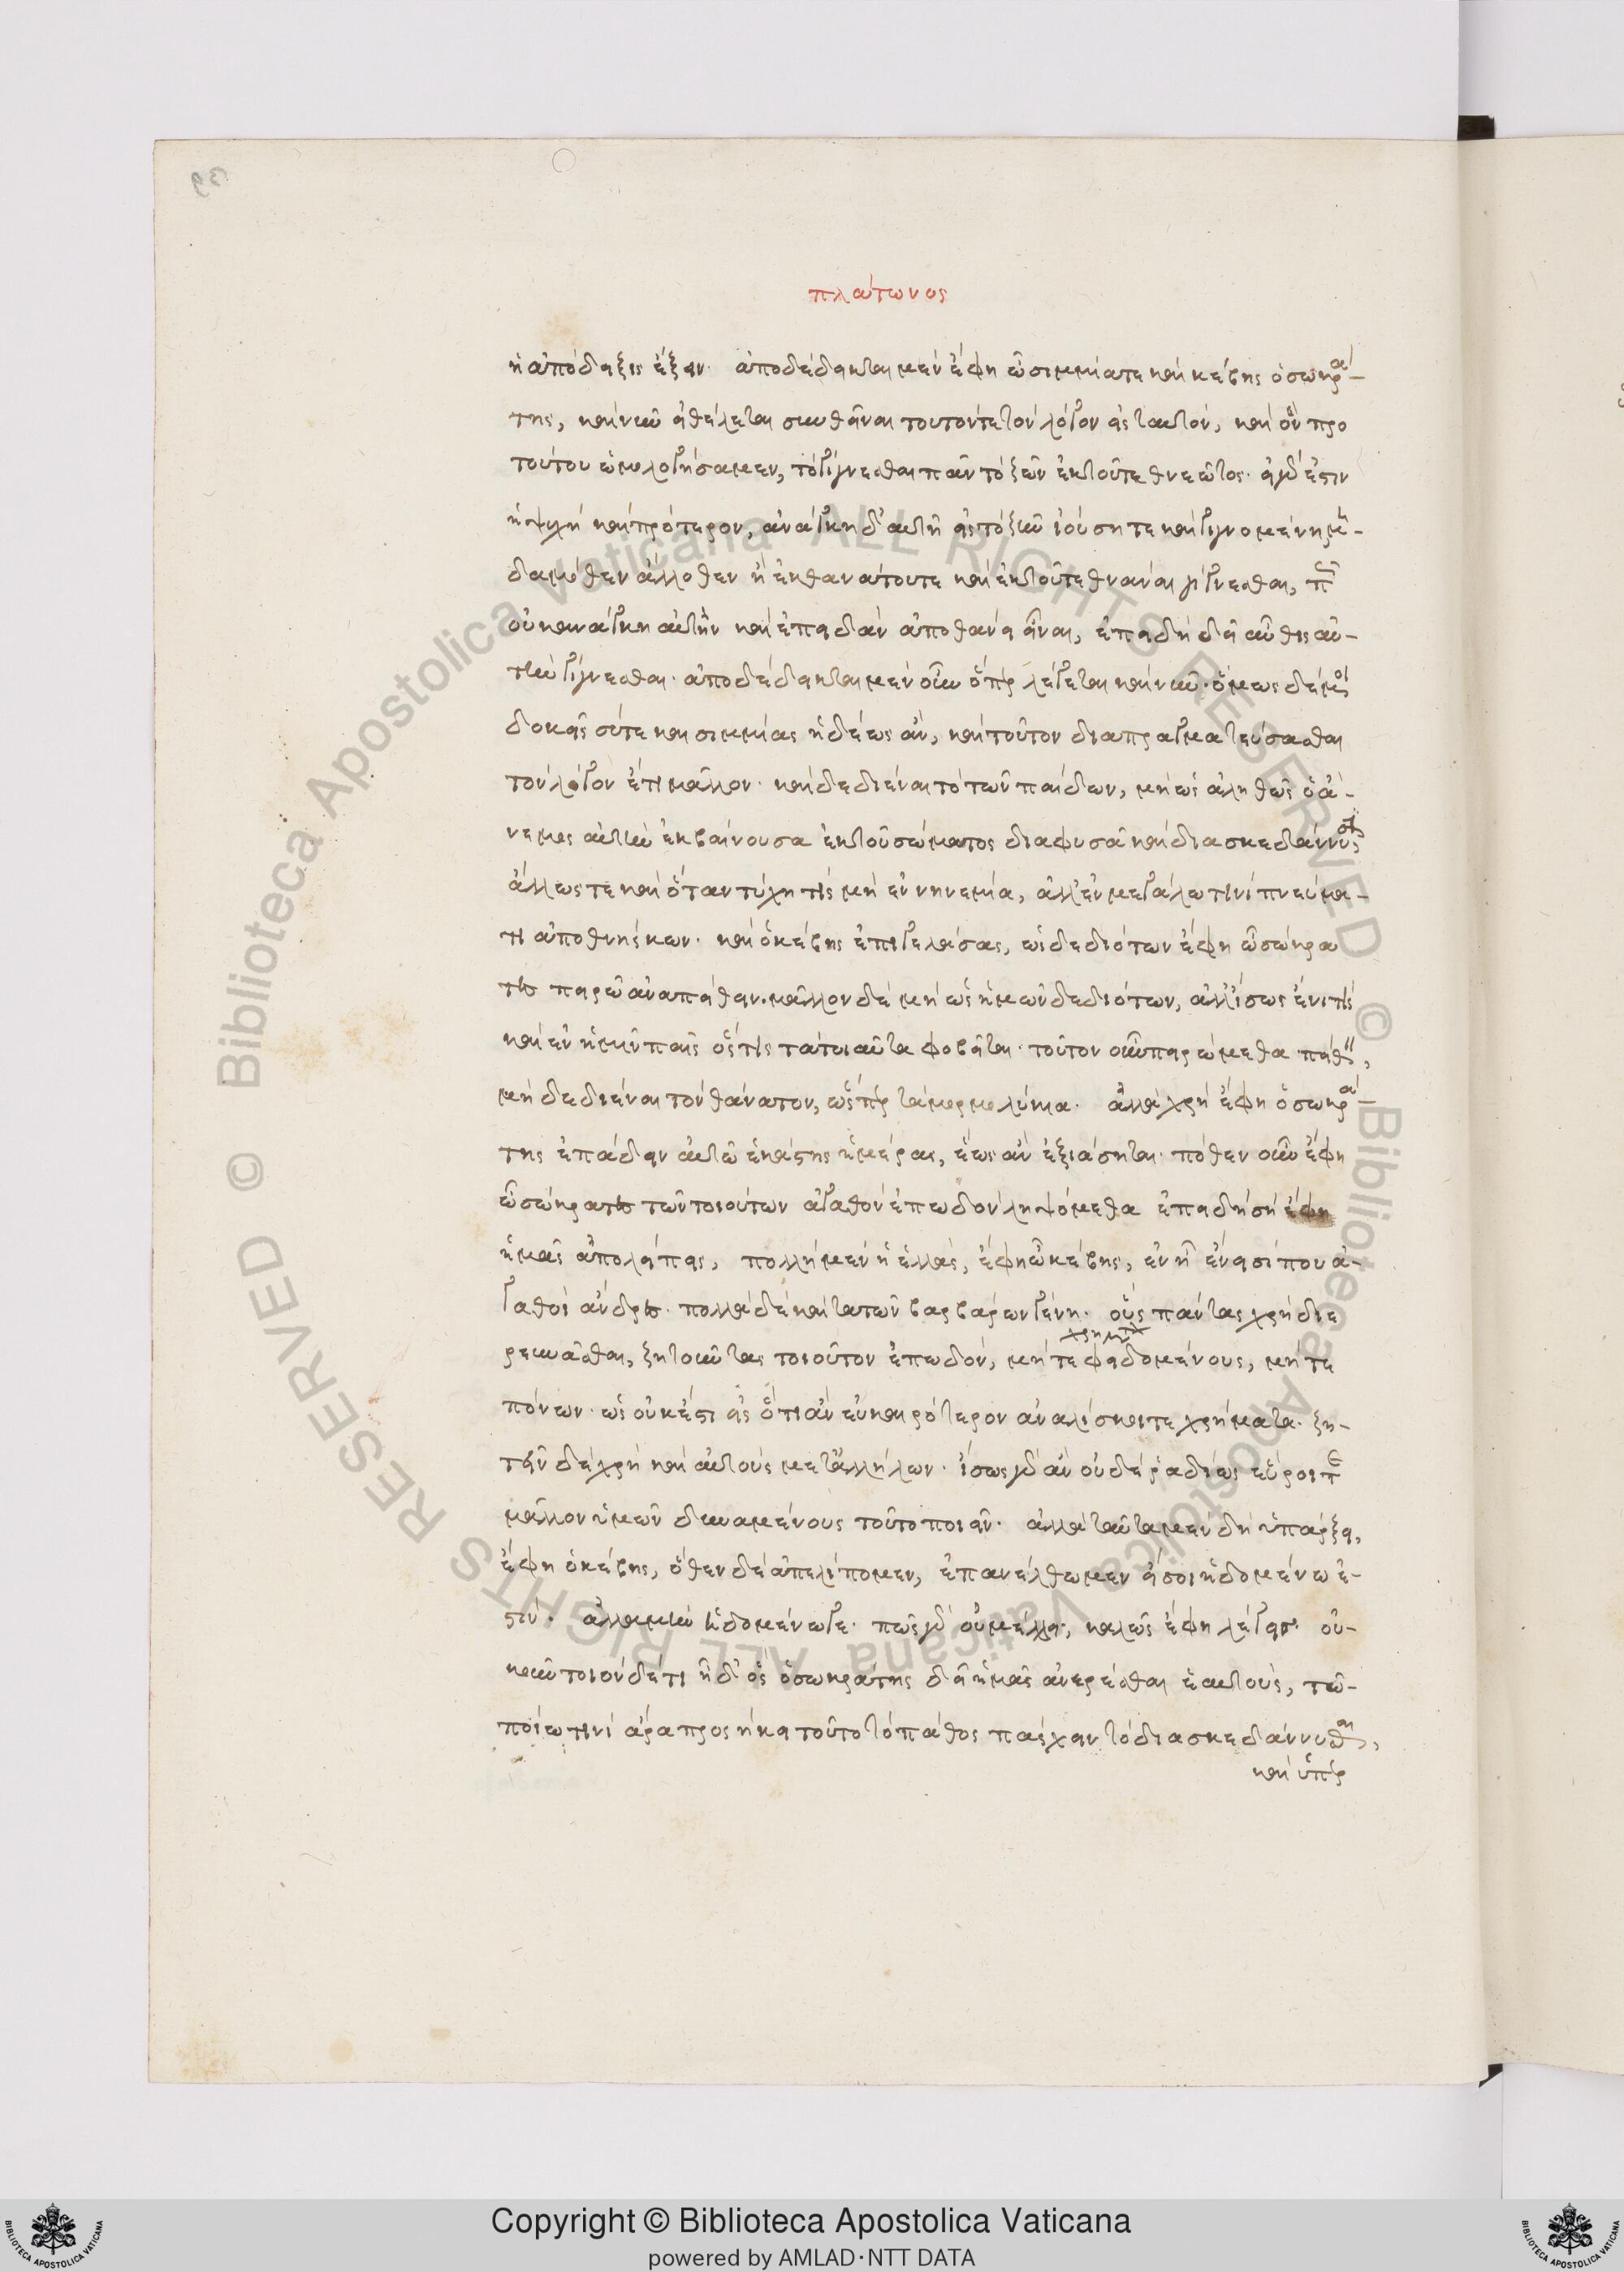 πλάτωνος
ἡ ἀπόδειξις ἕξειν. ἀποδέδεικται μὲν ἔφη ὦ σιμμία τε καὶ κέβης ὁ σωκρά-
της, καὶ νῦν εἰ θέλεται συνθεῖναι τοῦτόν τε τὸν λόγον εἰς ταυτὸν, καὶ ὃν προ
τούτου ὡμολογήσαμεν, τὸ γίγνεσθαι πᾶν τὸ ζῶν ἐκ τοῦ τεθνεῶτος. εἰ γὰρ ἔστιν
ἡ ψυχὴ καὶ πρότερον, ἀνάγκη δ' αὐτῇ εἰς τὸ ζῆν ἰούσῃ τε καὶ γιγνομένῃ μη-
δαμόθεν ἄλλοθεν ἢ ἐκ θανάτου τε καὶ ἐκ τοῦ τεθνάναι γίγνεσθαι, πῶς
οὐκ ἀνάγκη αὐτὴν καὶ ἐπειδὰν ἀποθάνῃ εἶναι, ἐπειδὴ δεῖ αὖθις αὐ-
τὴν γίγνεσθαι. ἀποδέδεικται μὲν οὖν ὅπερ λέγεται καὶ νῦν. ὅμως δέ μοι
δοκεῖς σύ τε και σιμμίας ἡδέως ἂν, καὶ τοῦτον διαπραγματεύσασθαι
τὸν λόγον ἔτι μᾶλλον. καὶ δεδιέναι τὸ τῶν παίδων, μὴ ὡς ἀληθῶς ὁ ἄ-
νεμος αὐτὴν ἐκβαίνουσα ἐκ τοῦ σώματος διαφυσᾶ καὶ διασκεδάννυσιν,
ἄλλως τε καὶ ὅταν τύχη τὶς μὴ ἐν νηνεμία, ἀλλ' ἐν μεγάλω τινὶ πνεύμα-
τι ἀποθνήσκων. καὶ ὁ κέβης ἐπιγελάσας, ὡς δεδιότων ἔφη ὦ σώκρα
τες πειρῶ ἀναπείθειν. μᾶλλον δὲ μὴ ὡς ἡμῶν δεδιότων, ἀλλ' ἴσως ἔνι τὶς
καὶ ἐν ἡμῖν παῖς ὅςτις τὰ τοιαῦτα φοβεῖται. τοῦτον οὖν πειρώμεθα πείθειν,
μὴ δεδιέναι τὸν θάνατον, ὥςπερ τὰ μορμολύκια. ἀλλὰ χρὴ ἔφη ὁ σωκρά-
της ἐπάδειν αὐτῶ ἑκάστης ἡμέρας, ἕως ἂν ἐξιάσηται. πόθεν οὖν ἔφη
ὦ σώκρατες τῶν τοιούτων ἀγαθὸν ἐπωδὸν ληψόμεθα ἐπειδὴ σὺ ἔφη
ἡμᾶς ἀπολείπεις, πολλὴ μὲν ἡ ἑλλὰς, ἔφη ὦ κέβης, ἐν ἧ ἔνεισί που ἀ-
γαθοὶ ἄνδρες. πολλὰ δὲ καὶ τὰ τῶν βαρβάρων γένη. οὓς πάντας χρὴ διε
χρημάτων
ρευνᾶσθαι, ζητοῦντας τοιοῦτον ἐπωδὸν, μήτε φειδομένους, μήτε
πόνων. ὡς οὐκ ἔστι εἰς ὅτι ἂν εὐκαιρότερον ἀναλίσκοιτε χρήματα. ζη-
τεῖν δὲ χρὴ καὶ αὐτοὺς μετ' ἀλλήλων. ἴσως γὰρ ἂν οὐδὲ ῥαδίως εὕροιτε
μᾶλλον ὑμῶν δυναμένους τοῦτο ποιεῖν. ἀλλὰ ταῦτα μὲν δὴ ὑπάρξει,
ἔφη ὁ κέβης, ὅθεν δὲ ἀπελίπομεν, ἐπανέλθωμεν εἴ σοι ἡδομένω ἐ-
στίν. ἀλλὰ μὴν ἡδομένω γε. πῶς γὰρ οὐ μέλλει, καλῶς ἔφη λέγεις. οὐ-
κοῦν τοιόνδέ τι ἦ δ' ὃς ὁ σωκράτης δεῖ ἡμᾶς ἀνερέσθαι ἑαυτοὺς, τῶ
ποίω τινὶ ἄρα προσήκει τοῦτο τὸ πάθος πάσχειν τὸ διασκεδάννυσθαι,
καὶ ὑπὲρ